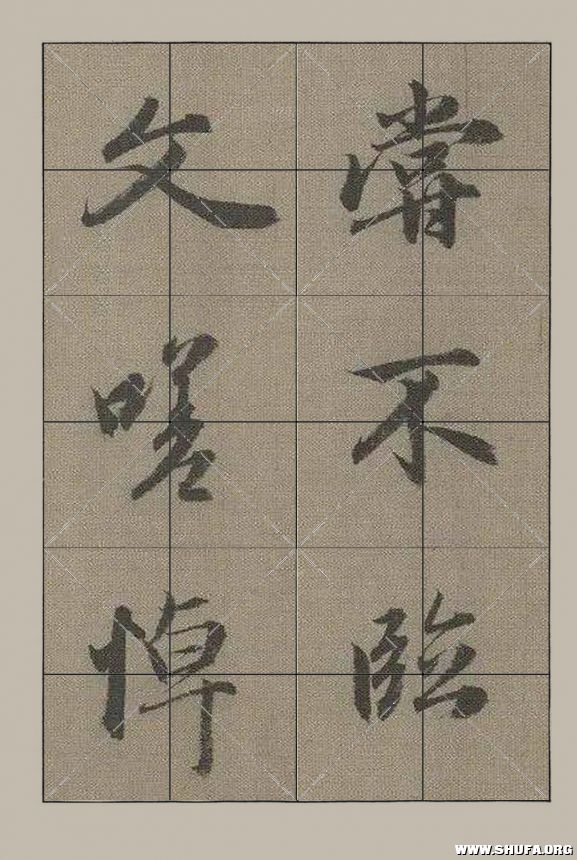 甞不臨
文嗟悼
WWW.SHUFA.ORG